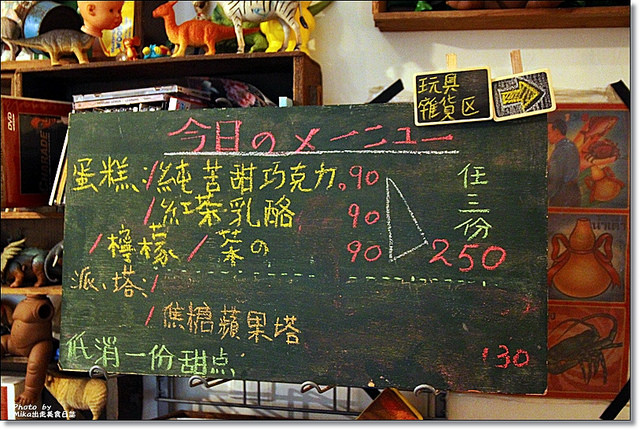 玩具
雜貨区
今日のメニュー
蛋糕:/純苦甜巧克力。90
/紅茶乳酪 90
/檸檬/茶の 90
任三份
250
派、塔:/
/焦糖蘋果塔
低消一份甜点 130
DVD
Photo by
Mika出走美食日誌